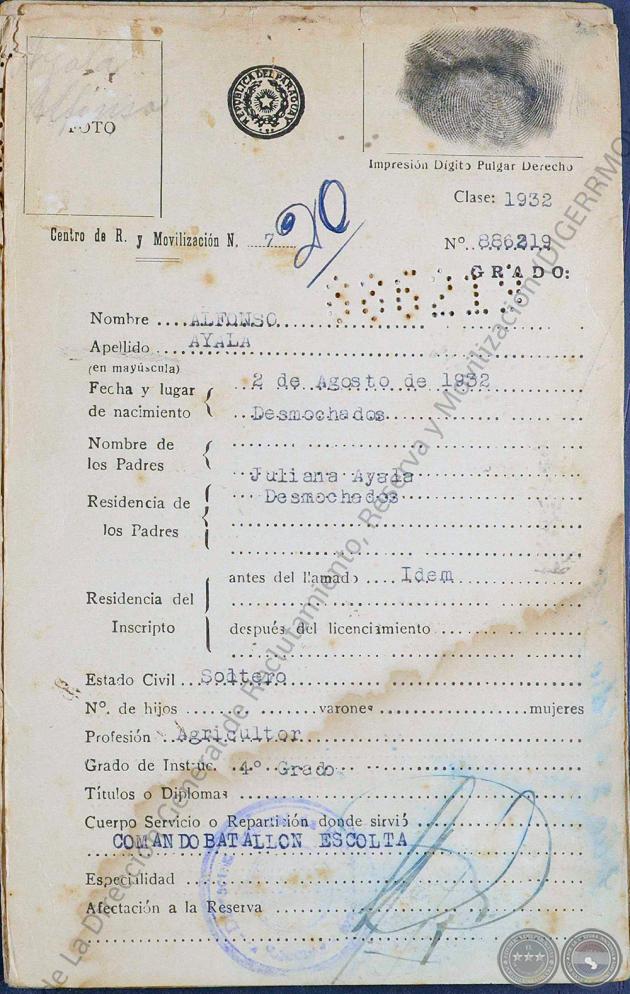 Ayala
Alfonso
FOTO
REPUBLICA DEL PARAGUAY
Impresión Dígito Pulgar Derecho
Clase: 1932
Centro de R. y Movilización N. 7
20
Nº. 886219
GRADO:
886219
Nombre ALFONSO
Apellido AYALA
(en mayúscula)
Fecha y lugar de nacimiento
2 de Agosto de 1932
Desmochados
Nombre de los Padres
Juliana Ayala
Residencia de los Padres
Desmochados
Residencia del Inscripto
antes del llamado Idem
después del licenciamiento
Estado Civil Soltero
Nº. de hijos varones mujeres
Profesión Agricultor
Grado de Instruc. 4º Grado
Títulos o Diplomas
Cuerpo Servicio o Repartición donde sirvió
COMANDO BATALLON ESCOLTA
Especialidad
Afectación a la Reserva
de La Dirección General de Reclutamiento, Reserva y Movilización (DIGERRMO